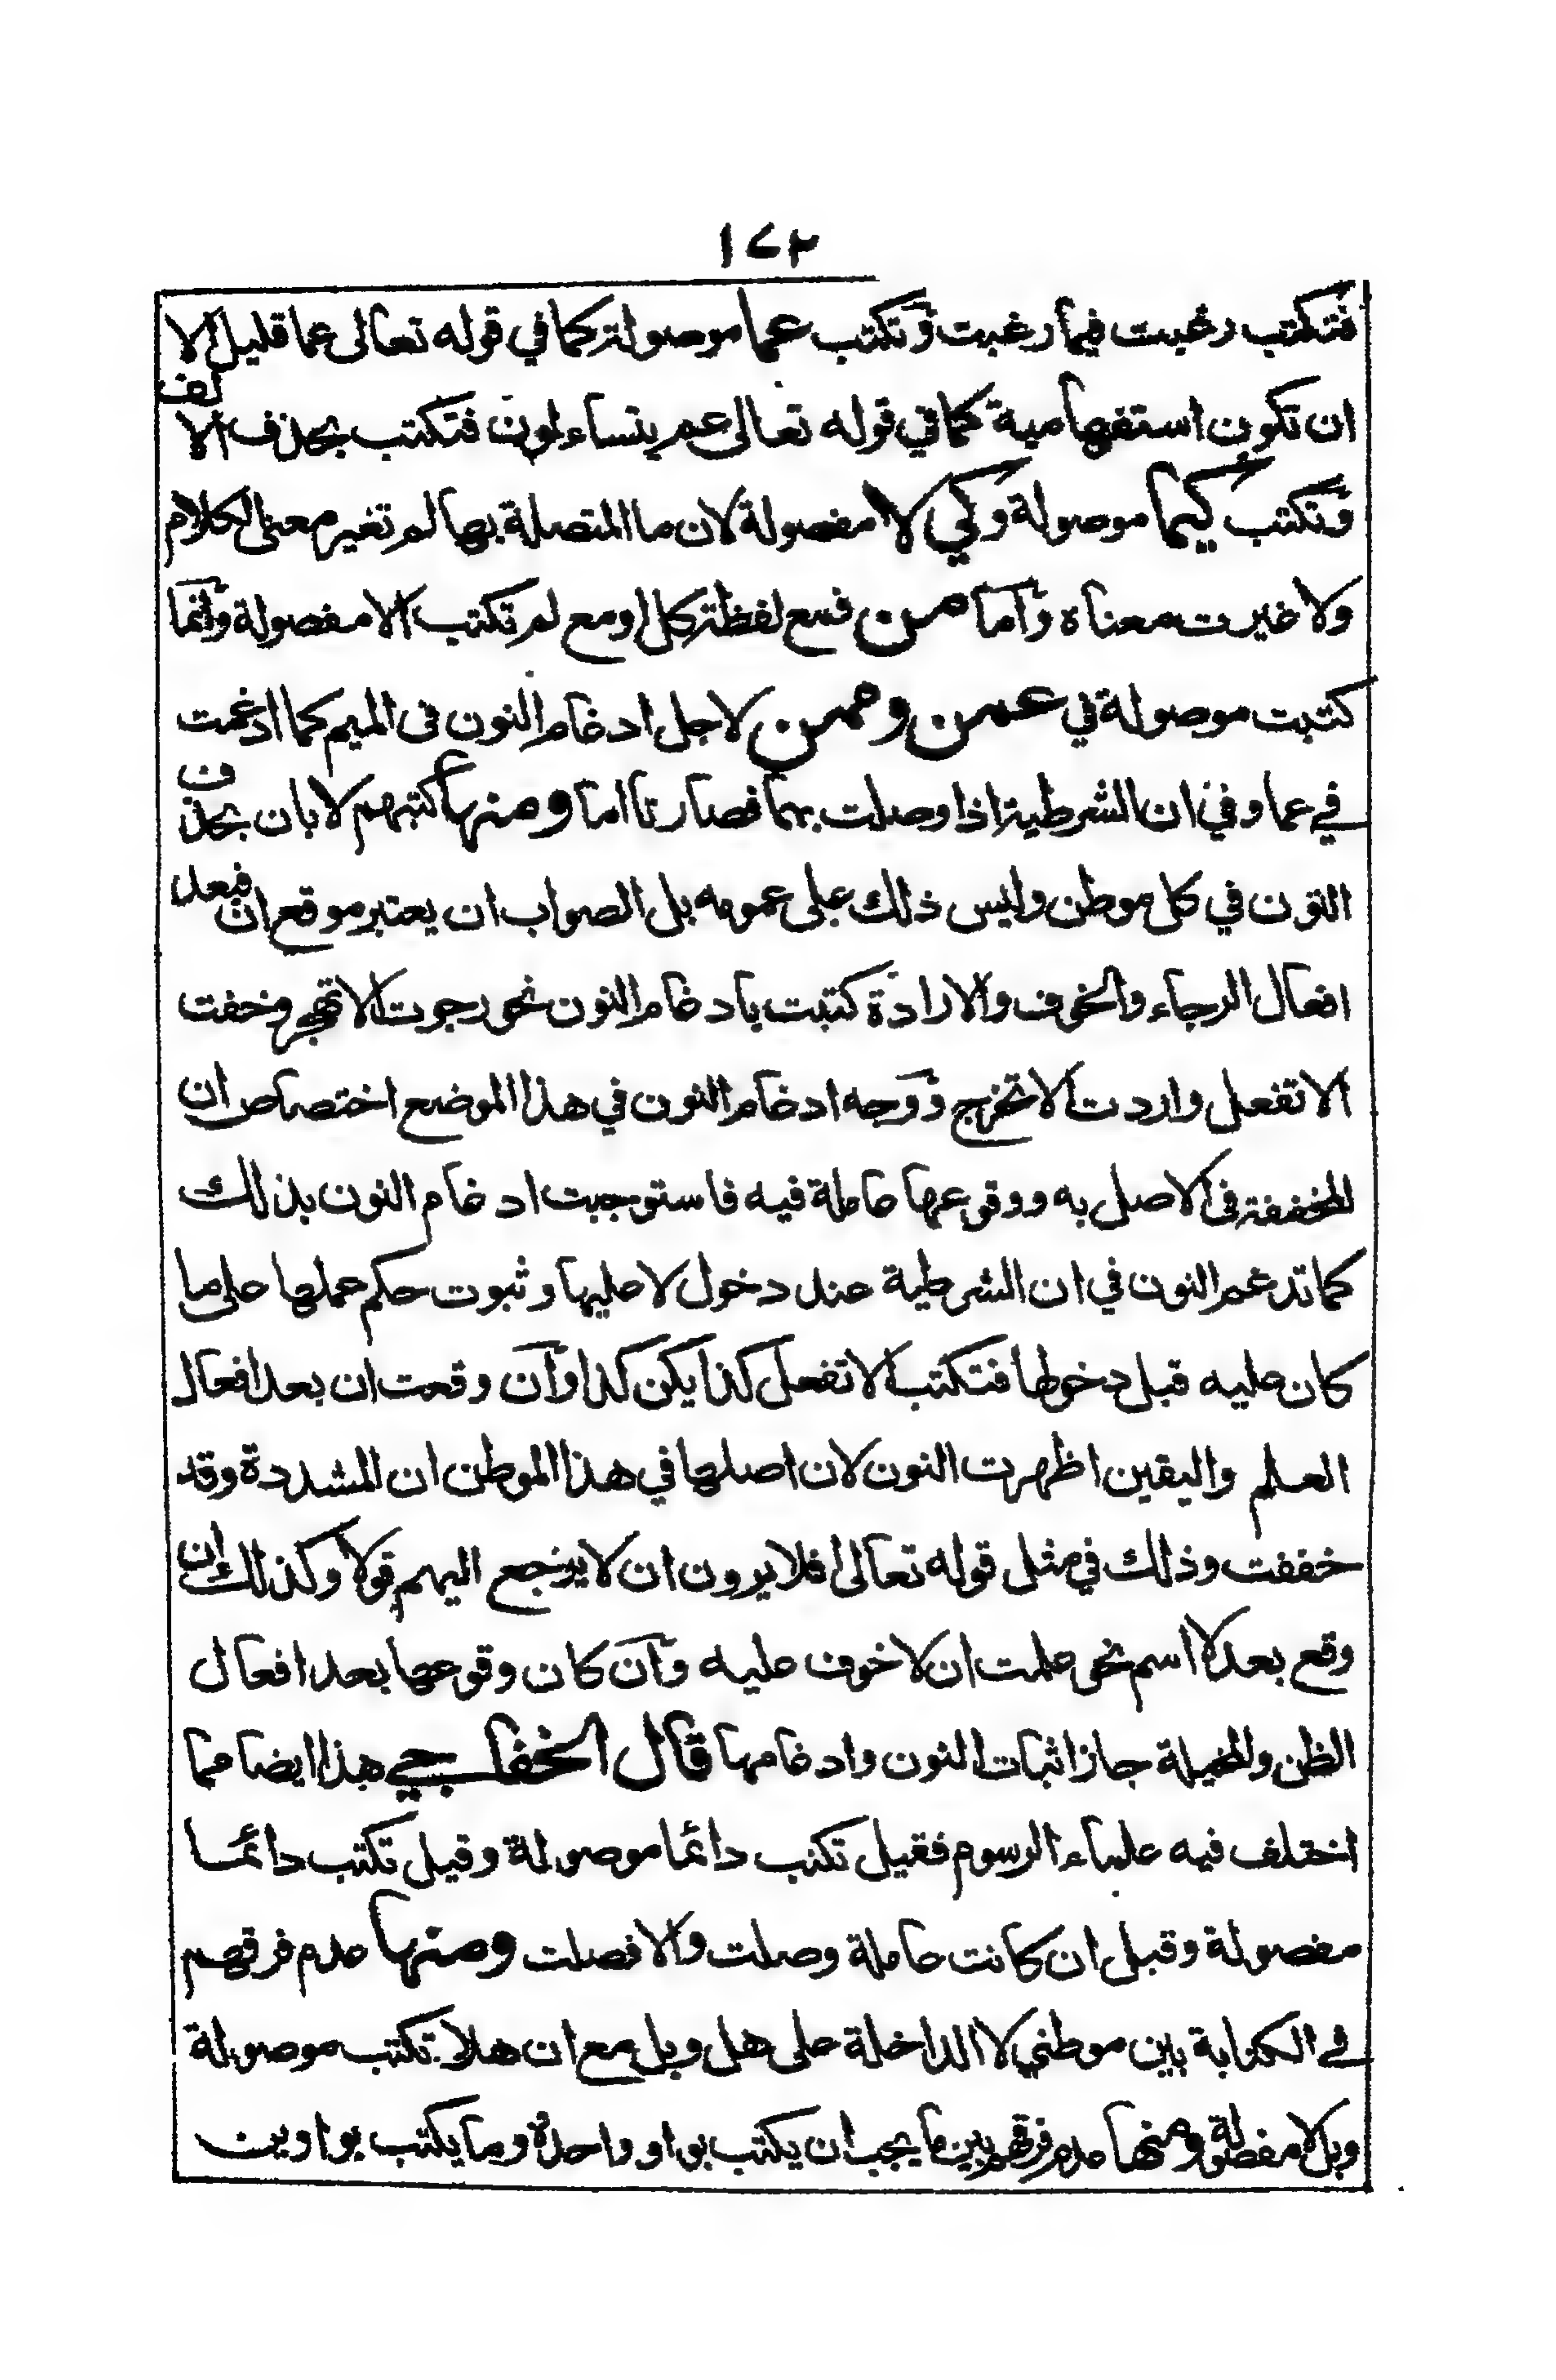 ١٧٢
فتكتب رغبت فيما رغبت وتكتب عما موصولة كما في قوله تعالى عما قليل الا
ان تكون استفهامية كما في قوله تعالى عم يتساءلون فتكتب بحذف الالف
وتكتب كيما موصولة وكي لا مفصولة لان ما المتصلة بها لم تغير معنى الكلام
ولا غيرت معناه واما من فمع لفظة كل او مع لم تكتب الا مفصولة وانما
كتبت موصولة في عمن وممن لاجل ادغام النون فى الميم كما ادغمت
في عما وفي ان الشرطية اذا وصلت بما فصارتا اما ومنها كتبهم لا بان بحذف
النون في كل موطن وليس ذلك على عمومه بل الصواب ان يعتبر موقع ان فبعد
افعال الرجاء والخوف والارادة كتبت بادغام النون نحو رجوت الا تهجر وخفت
الا تفعل واردت الا تخرج ووجه ادغام النون في هذا الموضع اختصاص ان
المخففة فى الاصل به ووقوعها عاملة فيه فاستوجبت ادغام النون بذلك
كما تدغم النون في ان الشرطية عند دخول لا عليها وثبوت حكم عملها على ما
كان عليه قبل دخولها فتكتب الا تفعل كذا يكن كذا وان وقعت ان بعد افعال
العلم واليقين اظهرت النون لان اصلها في هذا الموطن ان المشددة وقد
خففت وذلك في مثل قوله تعالى افلا يرون ان لا يرجع اليهم قولا وكذلك ان
وقع بعد لا اسم نحو علمت ان لا خوف عليه وان كان وقوعها بعد افعال
الظن والمخيلة جاز اثبات النون وادغامها قال الخفاجي هذا ايضا مما
اختلف فيه علماء الرسوم فقيل تكتب دائما موصولة وقيل تكتب دائما
مفصولة وقيل ان كانت عاملة وصلت والا فصلت ومنها عدم فرقهم
في الكتابة بين موطني لا الداخلة على هل وبل مع ان هلا تكتب موصولة
وبل لا مفصولة ومنها عدم فرقهم بين ما يجب ان يكتب بواو واحدة وما يكتب بواوين